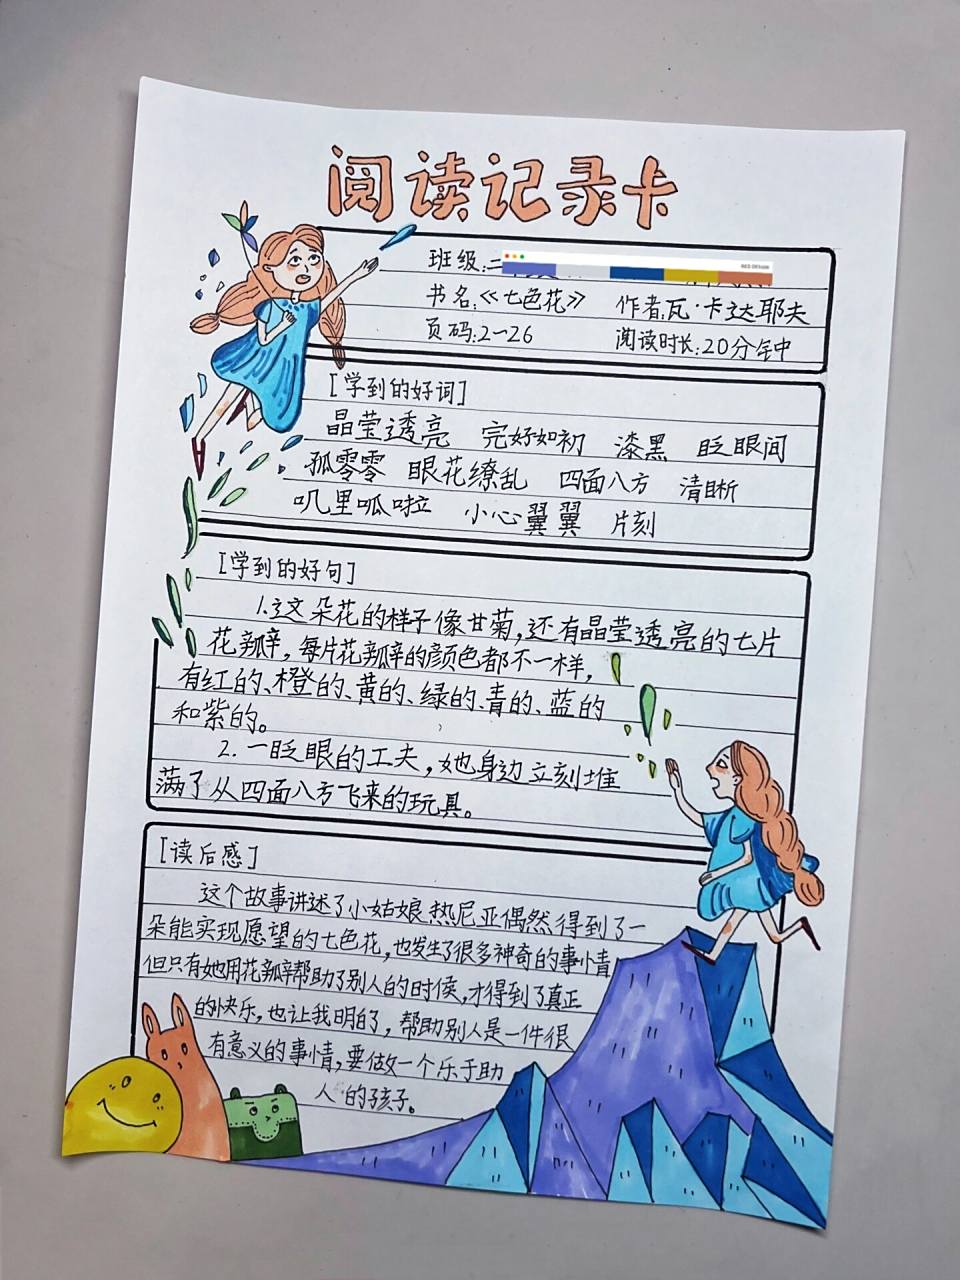 阅读记录卡
班级:二
书名:《七色花》 作者:瓦·卡达耶夫
页码:2-26 阅读时长:20分钟
[学到的好词]
晶莹透亮 完好如初 漆黑 眨眼间
孤零零 眼花缭乱 四面八方 清晰
叽里呱啦 小心翼翼 片刻
[学到的好句]
1.这朵花的样子像甘菊,还有晶莹透亮的七片
花瓣,每片花瓣的颜色都不一样,
有红的、橙的、黄的、绿的、青的、蓝的
和紫的。
2. 一眨眼的工夫,她身边立刻堆
满了从四面八方飞来的玩具。
[读后感]
这个故事讲述了小姑娘热尼亚偶然得到了一
朵能实现愿望的七色花,也发生了很多神奇的事情
但只有她用花瓣帮助了别人的时候,才得到了真正
的快乐,也让我明白了,帮助别人是一件很
有意义的事情,要做一个乐于助
人的孩子。